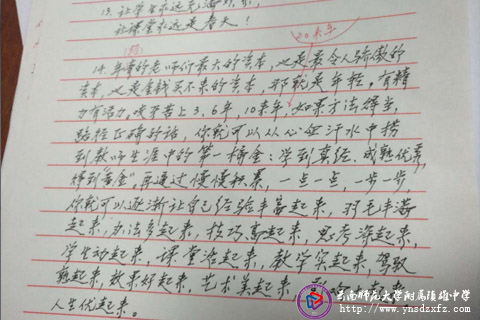 13. 让学生永远充满
让课堂永远是春天！
20来年
14. 年轻的老师们最大的资本，也是最令人骄傲的
资本，也是金钱买不来的资本，那就是年轻。有精
力有活力。吃苦上3、5年，10来年，如果方法得当，
路径正确的话，你就可以从心血汗水中捞
到教师生涯中的第一桶金：学到真经、成熟优秀，
得到"黄金"。再通过慢慢积累，一点一点，一步一步，
你就可以逐渐让自己经验丰富起来，羽毛丰满
起来，办法多起来，技巧高起来，思考深起来，
学生动起来，课堂活起来，教学实起来，驾驭
熟起来，效果好起来，艺术美起来，起来，
人生优起来。
云南师范大学附属镇雄中学
www.ynsdzxfz.com